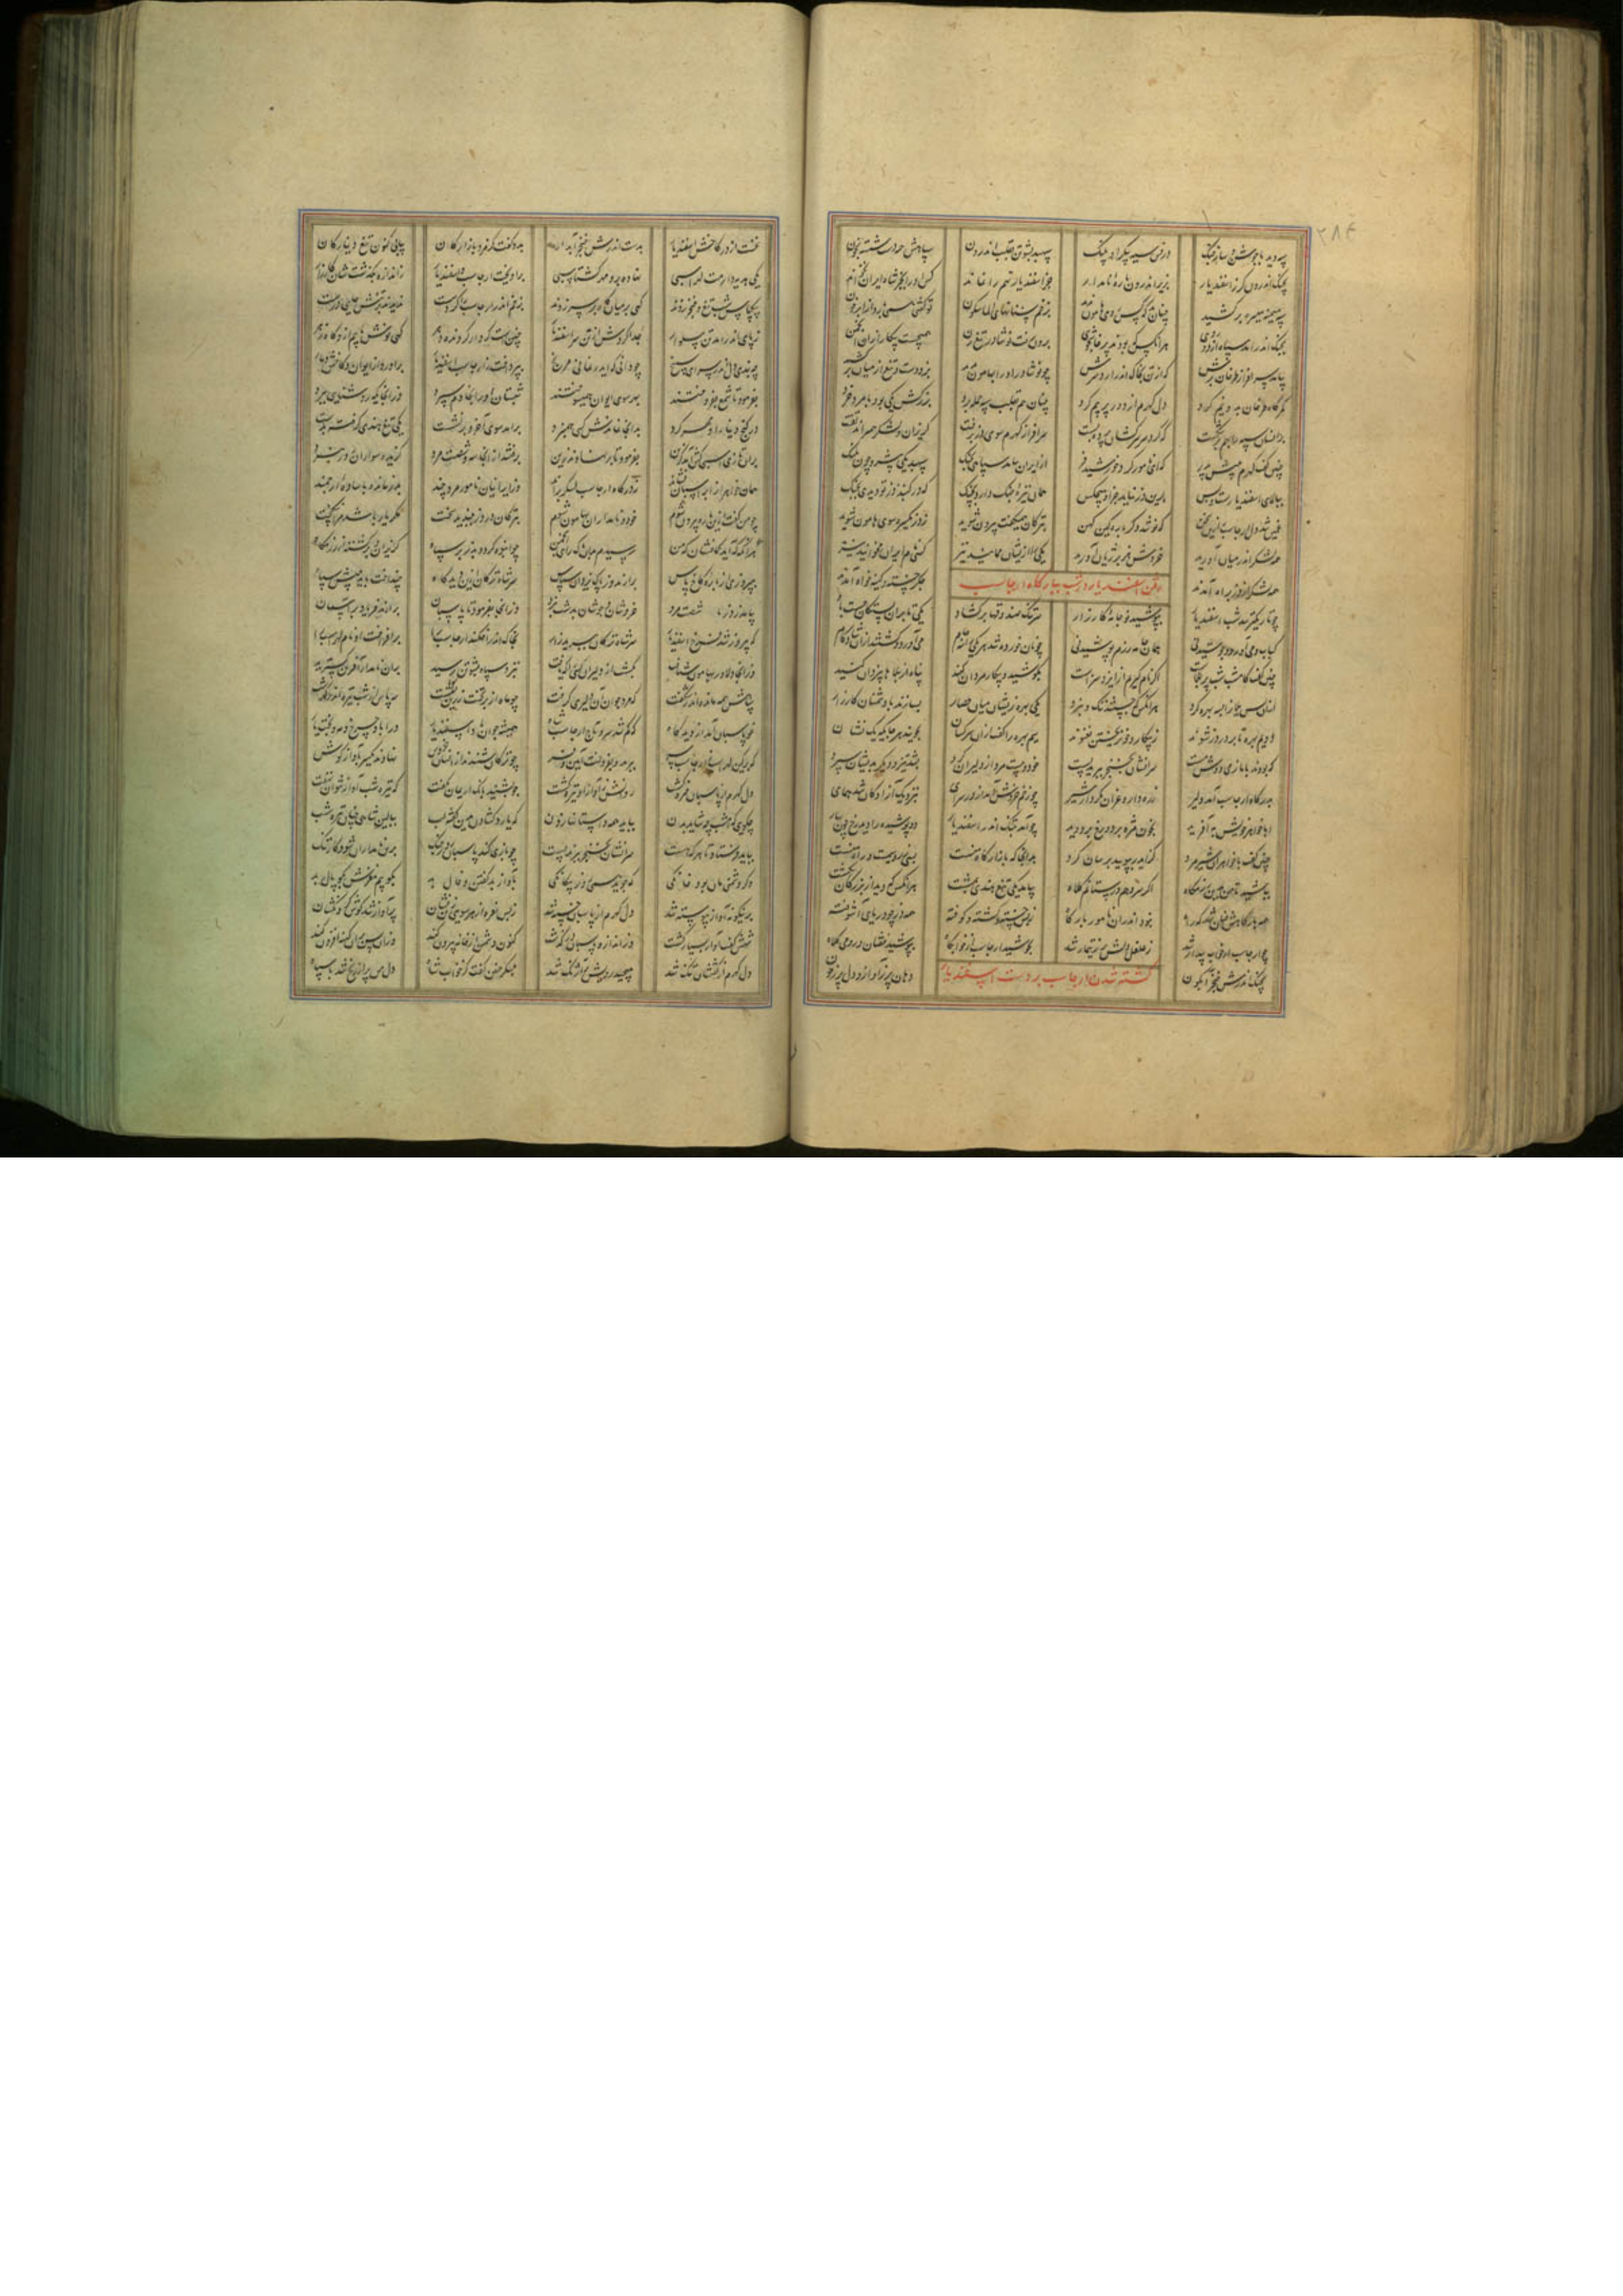 سپه دید با جوشن و ساز جنگ درفش سیه پیکر او پلنگ سپهبد پشوتن بقلب اندرون سپاهش همه دست شسته بخون
بچنگ اندرون گرز اسفندیار بزیر اندرون باره نامدار جز اسفندیار تهم را نماند کس او را بجز شاه ایران نخواند
سپه میمنه میسره برکشید چنان که کس روی هامون ندید ز زخم سنانهای الماس گون تو گفتی همی بارد از ابر خون
بجنگ اندر آمد سپاه از دو روی هر آنکس که بودند پرخاشجوی برون رفت نوشاذر تیغ زن همی جست پیکار از آن انجمن
بیامد سرافراز طرخان برش که از تن بخاک اندر آرد سرش چو نوشاذر او را بهامون بدید بزد دست و تیغ از میان برکشید
کمرگاه طرخان بدو نیم کرد دل کهرم از درد پر بیم کرد چنان هم بقلب سپه حمله برد بزرگش یکی بود با مرد خرد
برانسان سپه را بهم برشکست سرافراز کهرم سوی دز برفت گریزان و لشکر همی راند تفت
چنین گفت کهرم به پیش پدر که ای نامور گرد خورشید فر از ایران بیامد سپاهی بجنگ سپهبد یکی پیشرو چون نهنگ
ببالای اسفندیارست و بس بدین دز نیاید جز او هیچکس همان نیزه جنگ دارد بچنگ که در گنبدان دز تو دیدی بجنگ
غمین شد دل ارجاسب از این سخن که نو شد دگر باره کین کهن بترکان همی گفت بیرون شوید ز دز یکسره سوی هامون شوید
همه لشکر اندر میان آورید خروش هژبر ژیان آورید یکی را از ایشان ممانید نیز کسی نام ایران مخوانید نیز
همه لشکر از دز براه آمدند جگر خسته و کینه خواه آمدند
رفتن اسفندیار در شب ببارگاه ارجاسب
چو تاریکتر شد شب اسفندیار بپوشید نو جامه کارزار سر تنگ صندوقها برگشاد یکی تا بدان بستگان جست باد
کباب و می آورد و پوشیدنی همان جامه رزم و پوشیدنی چو نان خورده شد هر یکی را سه جام می آورد و گشتند ازان شادکام
چنین گفت کامشب شب پر بلاست اگر نام گیریم از ایدر سزاست بکوشید و پیکار مردان کنید پناه از بلاها بیزدان کنید
از ان پس یلان را سه بهره کرد هر آنکس که جستند ننگ و نبرد یکی بهره زیشان میان حصار بسازند با دشمنان کارزار
دویم بهره تا بر در دز شوند ز پیکار و خون ریختن نغنوند سیم بهره را گفت از سرکشان نجویند هر جایگه یک نشان
که بودند با ما ز می دوش مست سرانشان بخنجر ببرید پست خود و بیست مرد از دلیران گرد بشد تیز و دیگر بدیشان سپرد
بدرگاه ارجاسب آمد دلیر زره دار و غران بکردار شیر چو زخم خروش آمد از در سرای بنزدیک آزادگان شد همای
ابا خواهر خویش به آفرید بخون مژه بر دو رخ بر دوید چو آمد بتنگ اندر اسفندیار دو پوشیده را دید رخ چون بهار
چنین گفت با خواهران شیر مرد کز ایدر بپویید برسان گرد بدانجا که بازارگاه منست بسی زر و سیمست و راه منست
بباشید تا من بدین رزمگاه اگر سر دهم ور ستانم کلاه بیامد یکی تیغ هندی بمشت هر آنکس که دید از بزرگان بکشت
همه بارگاهش چنان شد که راه نبود اندران نامور بارگاه ز بس خسته و کشته و کوفته چو دریای آشوفته
چو ارجاسب از خواب بیدار شد ز غلغل دلش پر ز تیمار شد بجوشید ارجاسب از خوابگاه بپوشید خفتان و رومی کلاه
بچنگ اندرش خنجر آبگون دهان پر ز آواز و دل پر ز خون
کشته شدن ارجاسب بر دست اسفندیار
نخست از در کاخش اسفندیار بدست اندرش خنجر آبدار بدو گفت کز مرد بازارگان بیابی کنون تیغ دینارگان
یکی هدیه دارمت لهراسبی نهاده برو مهر گشتاسبی برآویخت ارجاسب و اسفندیار ز اندازه بگذشت شان کارزار
پیاپی تیغ و خنجر زدند گهی بر میان گاه بر سر زدند بزخم اندر ارجاسب را کرد سست ندیدند بر تنش جایی درست
ز پای اندر آمد تن پیلوار جدا کردش از تن سر اسفندیار چنین است کردار گردنده دهر گهی نوش یابیم ازو گاه زهر
چه بندی دل اندر سرای سپنج چو دانی که ایدر نمانی مرنج بپردخت ز ارجاسب اسفندیار برآورد از ایوان و کاخش دمار
بفرمود تا شمع بفروختند بهر سوی ایوان همی سوختند شبستان او را بخادم سپرد
در گنج دینار او مهر کرد بدانجا نماندش کسی هم نبرد بیامد سوی آخر و برنشست یکی تیغ هندی گرفته بدست
بران تازی اسبی کش آمد گزین بفرمود تا برنهادند زین برفتند از آنجا صد و شصت مرد گزیده سواران روز نبرد
همان خواهران را بر اسپان نشاند ز درگاه ارجاسب لشکر براند وز ایرانیان نامور مرد چند بدز ماند با ساوه ارجمند
چو من گفت ازین باره بیرون شوم خود و نامداران بهامون شوم بترکان در دز ببندید سخت مگر یار باشد مرا نیک بخت
هر آنگه که آید گمانتان که من رسیدم بدان پاک رای انجمن چو انبوه گردد بدز بر سپاه گریزان و برگشته از رزمگاه
بپیروزی از باره کاخ پاس برآرند و از پاک یزدان سپاس سر شاه ترکان از آن دیدگاه بینداخت باید به پیش سپاه
بیامد ز دز با شصت مرد خروشان و جوشان بدشت نبرد وز آنجا بفرمود تا پاسبان برآرند فریاد بر آسمان
که پیروز شد فرخ اسفندیار سر شاه ترکان ببرید زار افکند ارجاسب را برافروخت او نام لهراسب را
وز آنجا دلاور بهامون شتافت بکشت از دلیران کسی را که یافت بنزد سپاه پشوتن رسید بدان نامدار آفرین گسترید
سپاهش همه مانده اندر شگفت که مرد جوان آن دلیری گرفت چو ماه از بر تخت زرین نشست سه پاس از شب تیره اندر گذشت
غو پاسبان آمد از دیدگاه که گم شد سر و تاج ارجاسب شاه همیشه جوان باد اسفندیار ورا باد چرخ و مه و بخت یار
که بر کین لهراسب ارجاسب ببرید و بفروخت آیین و فر چو ترکان شنیدند از انسان خروش نهادند یکسر بآواز گوش
دل کهرم از پاسبان خیره گشت روانش ز آواز او تیره گشت چو بشنید با اندریمان گفت که تیره شب آواز نتوان نهفت
چه گویی که امشب چه شاید بدن بباید همه داستانها زدن که یارد گشادن بدین گونه لب ببالین شاهی چنین تیره شب
بباید فرستاد تا هر که هست سرانشان بخنجر ببرند پست چو بازی کند پاسبان روز جنگ برین نامداران شود کار تنگ
وگر دشمن ما بود خانگی که جوید همی روز بیگانگی بآواز بد گفتن و فال بد بکوبیم مغزش بگوپال بد
بدینگونه آواز پیوسته شد دل کهرم از پاسبان خسته شد ز بس نعره از هر سویی زین نشان پر آواز شد گوش گردنکشان
سپه گفت آواز بسیار گشت وز اندازه پاسبان درگذشت کنون دشمن از خانه بیرون کنند وزان پس بدین کینه افزون کنند
دل کهرم از گفتشان تنگ شد بپیچید و رویش پر آژنگ شد بلشکر چنین گفت کز خواب شاه دل من پر از رنج شد با سپاه